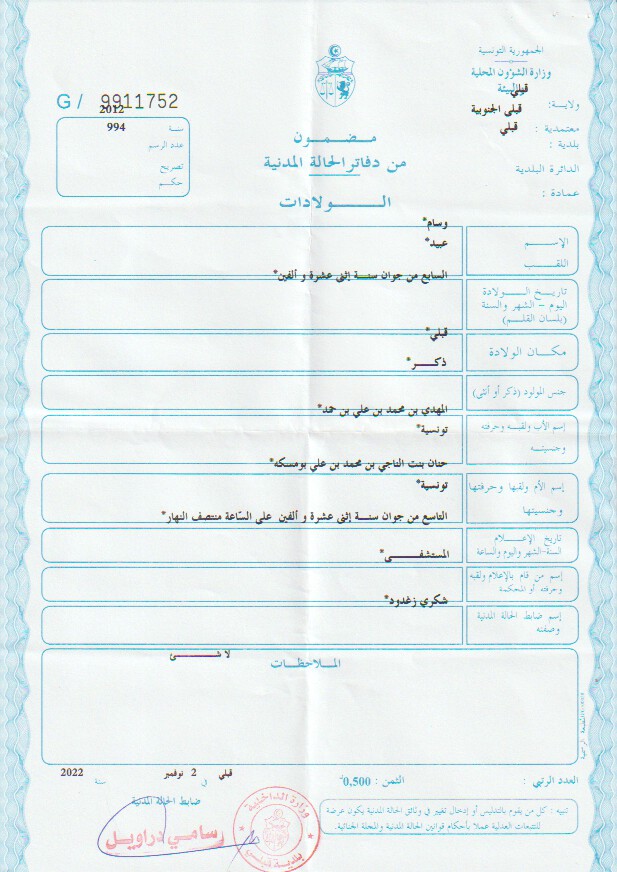 الجمهورية التونسية
وزارة الشؤون المحلية
والبيئة
قبلي
ولاية:
قبلي الجنوبية
معتمدية :
قبلي
بلدية :
الدائرة البلدية
عمادة :
G / 9911752
2012
سنة
994
عدد الرسم
تصريح
حكم
مضمون
من دفاتر الحالة المدنية
الولادات
وسام*
الإسم
عبيد*
اللقب
السابع من جوان سنة إثنى عشرة و ألفين*
تاريخ الولادة
اليوم - الشهر والسنة
(بلسان القلم)
قبلي*
مكان الولادة
ذكر*
جنس المولود (ذكر أو أنثى)
المهدي بن محمد بن علي بن حمد*
إسم الأب ولقبه وحرفته
تونسية*
وجنسيته
حنان بنت الناجي بن محمد بن علي بومسكه*
إسم الأم ولقبها وحرفتها
تونسية*
وجنسيتها
التاسع من جوان سنة إثنى عشرة و ألفين على السّاعة منتصف النهار*
تاريخ الإعلام
السنة-الشهر واليوم والساعة
المستشفى*
إسم من قام بالإعلام ولقبه
وحرفته أو المحكمة
شكري زغدود*
إسم ضابط الحالة المدنية
وصفته
لا شئ
الملاحظات
قبلي
2 نوفمبر
2022
في
سنة
العدد الرتبي :
الثمن : 0,500د
ضابط الحالة المدنية
تنبيه : كل من يقوم بالتدليس أو إدخال تغيير في وثائق الحالة المدنية يكون عرضة
للتتبعات العدلية عملا بأحكام قوانين الحالة المدنية والمجلة الجنائية.
رسامي دراويل
وزارة الداخلية
بلدية قبلي